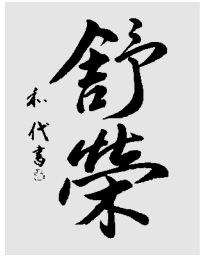 舒榮
和代書